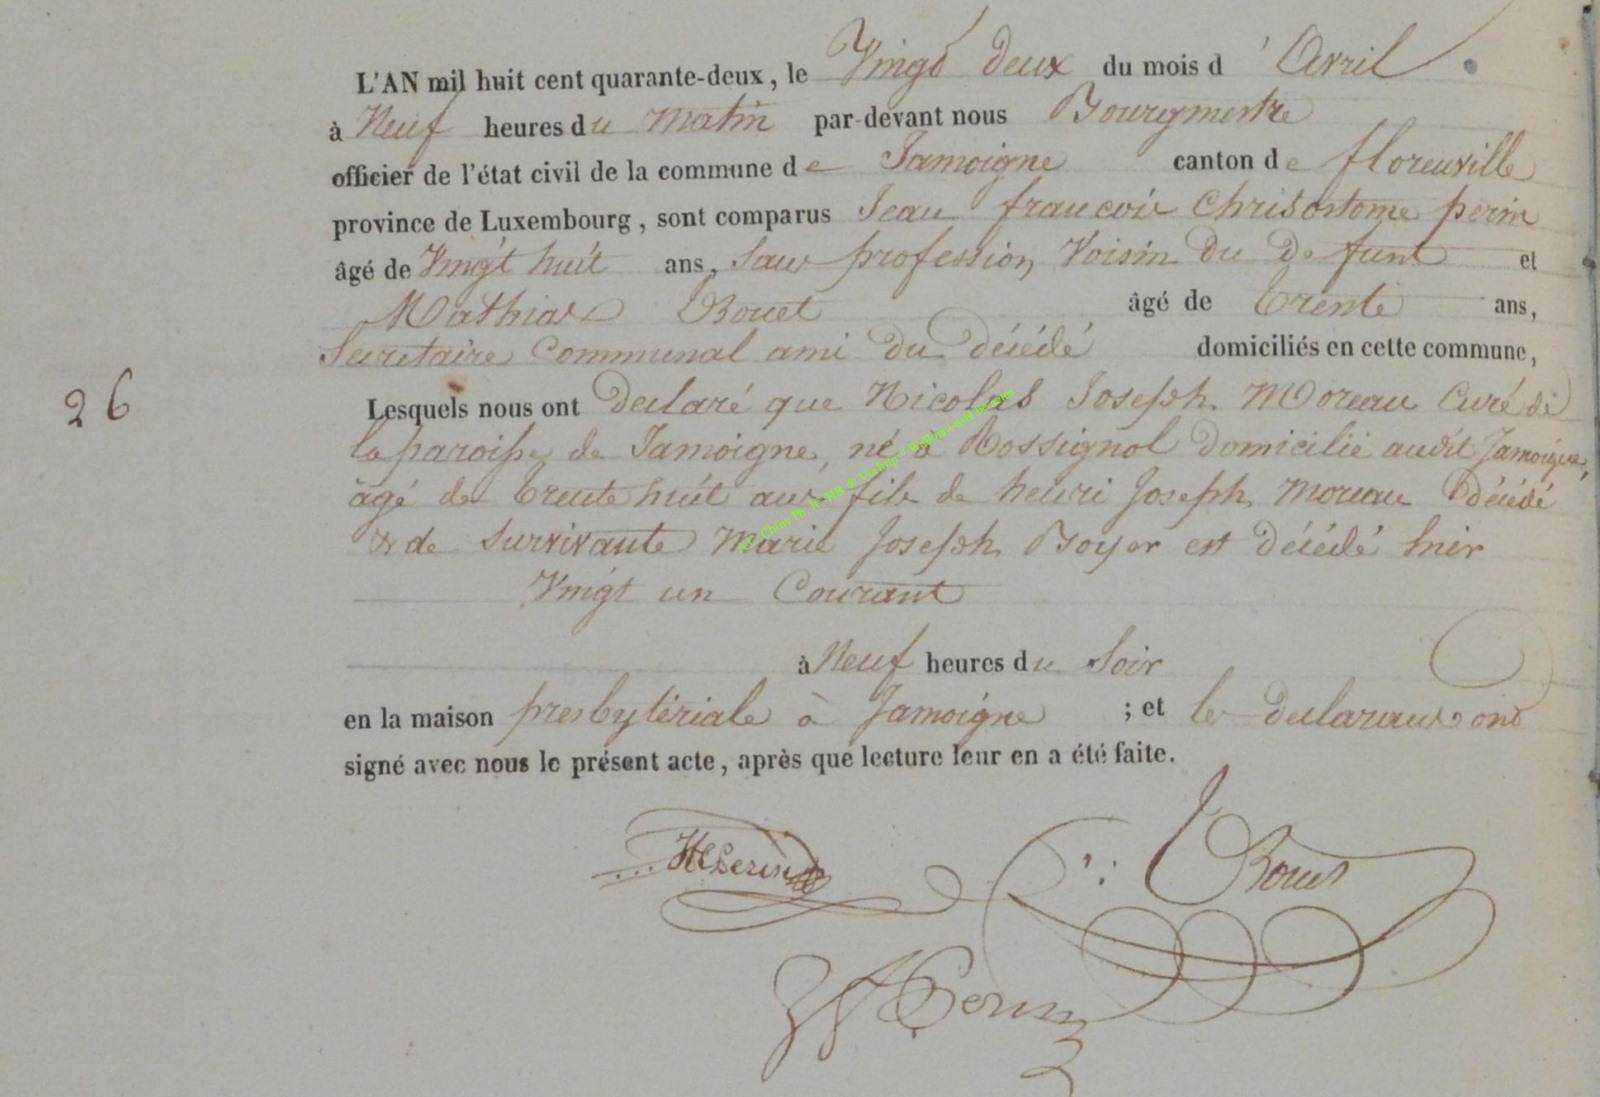 L'AN mil huit cent quarante-deux, le Vingt deux du mois d'Avril
à Neuf heures du matin par-devant nous Bourgmestre
officier de l'état civil de la commune de Jamoigne canton de florenville
province de Luxembourg, sont comparus Jean francois Chrisostome perin
âgé de Vingt huit ans, Sans profession, Voisin du Defunt et
Mathias Bouet âgé de trente ans,
Secretaire Communal ami du décédé domiciliés en cette commune,
26
Lesquels nous ont declaré que Nicolas Joseph Moreau Curé de
la paroisse de Jamoigne, né à Rossignol domicilié audit Jamoigne,
agé de trente huit ans fils de henri Joseph Moreau décédé
& de Survivante Marie Joseph Boyer est décédé hier
Vingt un Courant
à Neuf heures du Soir
en la maison presbytériale à Jamoigne ; et les declarans ont
signé avec nous le présent acte, après que lecture leur en a été faite.
Perin
Bouet
Perin